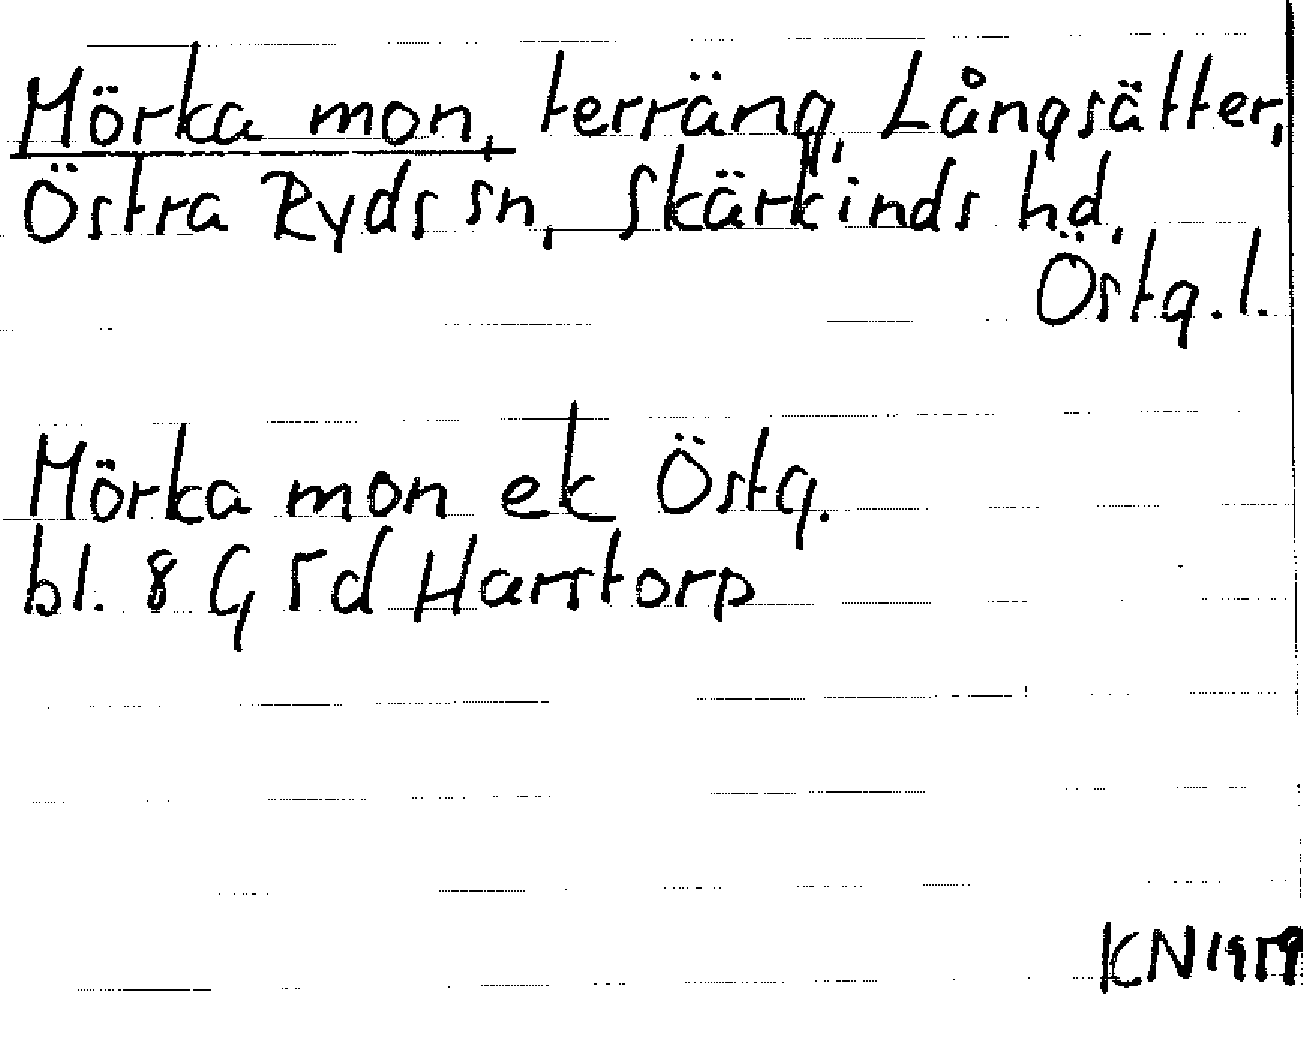 Mörka mon, terräng, Långsätter,
Östra Ryds sn, Skärkinds hd,
Östg. l.
Mörka mon ek Östg.
bl. 8 G 5d Harstorp
KN 1959